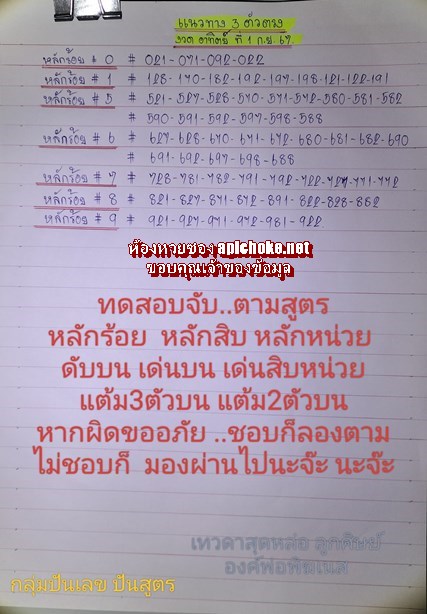 แนวทาง 3 ตัวตรง
งวด อาทิตย์ ที่ 1 ก.ย. 67
หลักร้อย # 0 # 021-071-092-022
หลักร้อย # 1 # 128-170-182-192-197-198-121-122-191
หลักร้อย # 5 # 521-527-528-570-571-572-580-581-582
# 590-591-592-597-598-588
หลักร้อย # 6 # 627-628-670-671-672-680-681-682-690
# 691-692-697-698-688
หลักร้อย # 7 # 728-781-782-791-792-722-727-771-772
หลักร้อย # 8 # 821-827-871-872-891-822-828-882
หลักร้อย # 9 # 921-927-971-972-981-922
ห้องหวยซอง apichoke.net
ขอบคุณเจ้าของข้อมูล
ทดสอบจับ..ตามสูตร
หลักร้อย หลักสิบ หลักหน่วย
ดับบน เด่นบน เด่นสิบหน่วย
แต้ม3ตัวบน แต้ม2ตัวบน
หากผิดขออภัย ..ชอบก็ลองตาม
ไม่ชอบก็ มองผ่านไปนะจ๊ะ นะจ๊ะ
เทวดาสุดหล่อ ลูกศิษย์
กลุ่มปันเลข ปันสูตร